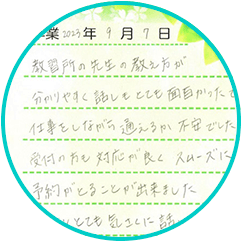 業2023年9月7日
教習所の先生の教え方が
分かりやすく話しもとても面白かったで
仕事をしながら通えるか不安でした
受付の方も対応が良くスムーズに
予約がとることが出来ました
とても気さくに話